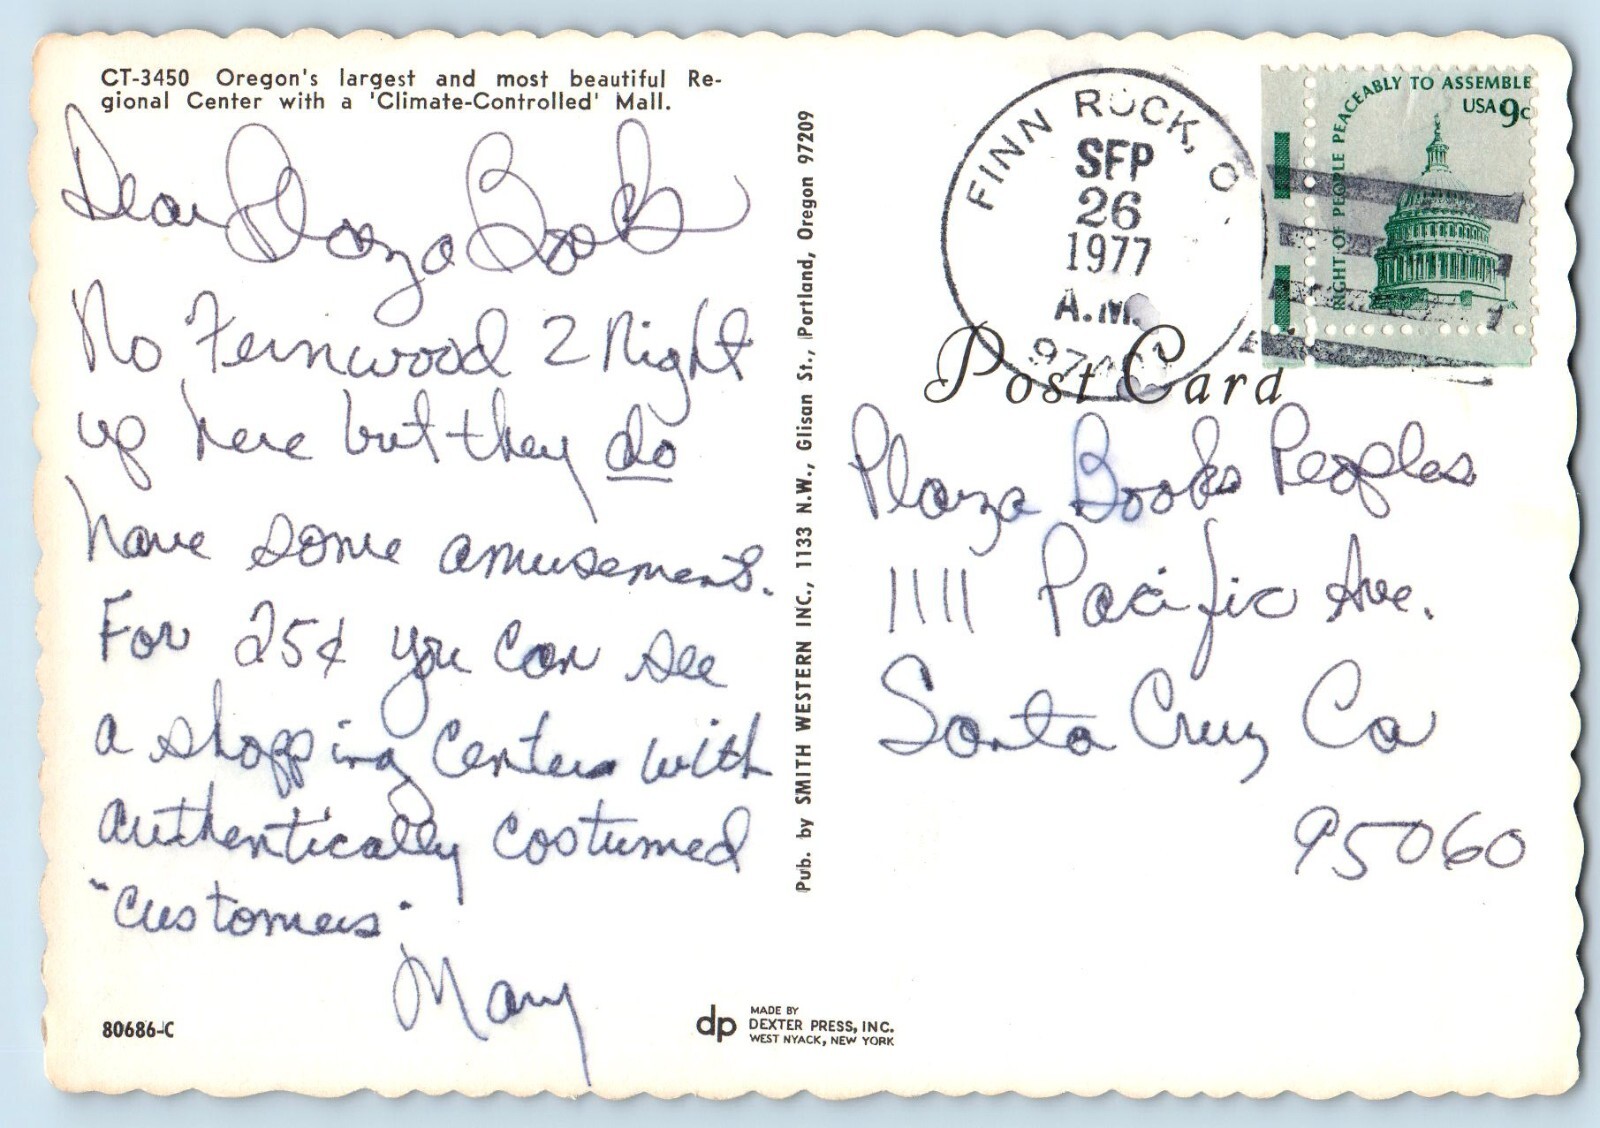 CT-3450 Oregon's largest and most beautiful Re-
gional Center with a 'Climate-Controlled' Mall.
Dear Plaza Books
No Fernwood 2 Night
up here but they do
have some amusements.
For 25¢ you can see
a shopping center with
authentically costumed
"customers".
Mary
80686-C
dp MADE BY
DEXTER PRESS, INC.
WEST NYACK, NEW YORK
Pub. by SMITH WESTERN INC., 1133 N.W., Glisan St., Portland, Oregon 97209
FINN ROCK, O
SEP
26
1977
A.M.
RIGHT OF PEOPLE PEACEABLY TO ASSEMBLE
USA 9c
Post Card
Plaza Books Peoples
1111 Pacific Ave.
Santa Cruz Ca
95060